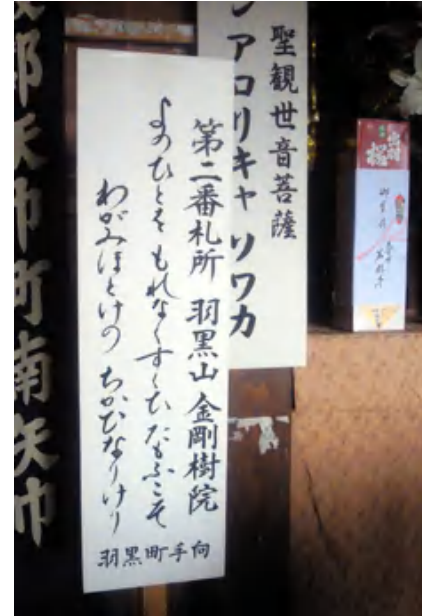 聖観世音菩薩
アロリキャ ソワカ
第二番札所 羽黒山 金剛樹院
よのひとを もれなくすくひ たもふこそ
わがみほとけの ちかひなりけり
羽黒町手向
矢巾町南矢巾